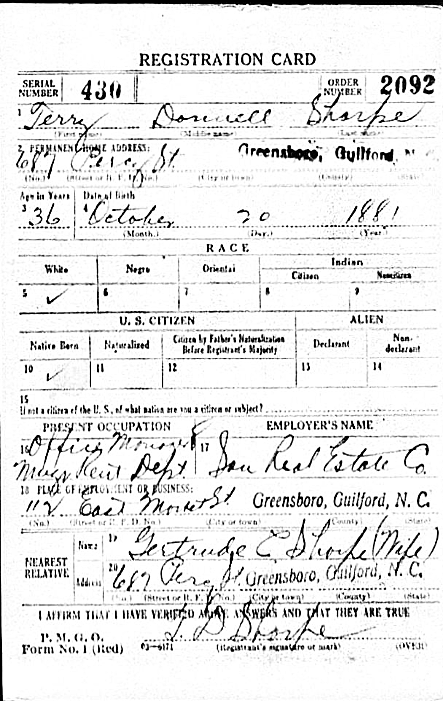 REGISTRATION CARD
SERIAL NUMBER 430 ORDER NUMBER 2092
1 Terry Donnell Sharpe
(First name) (Middle name) (Last name)
2 PERMANENT HOME ADDRESS:
687 Percy St Greensboro, Guilford, N. C.
(No.) (Street or R. F. D. No.) (City or town) (County) (State)
Age in Years Date of Birth
3 36 4 October 20 1881
(Month.) (Day.) (Year.)
RACE
White Negro Oriental Indian
Citizen Noncitizen
5 ✓ 6 7 8 9
U. S. CITIZEN ALIEN
Native Born Naturalized Citizen by Father's Naturalization Before Registrant's Majority Declarant Non-declarant
10 ✓ 11 12 13 14
15
If not a citizen of the U. S., of what nation are you a citizen or subject?
PRESENT OCCUPATION EMPLOYER'S NAME
16 Office 17
Dept Real Estate Co.
18 PLACE OF EMPLOYMENT OR BUSINESS:
112 East Market St Greensboro, Guilford, N. C.
(No.) (Street or R. F. D. No.) (City or town) (County) (State)
NEAREST RELATIVE
Name 19 Gertrude E Sharpe (Wife)
Address 20 687 Percy St Greensboro, Guilford, N. C.
(No.) (Street or R. F. D. No.) (City or town) (County) (State)
I AFFIRM THAT I HAVE VERIFIED ABOVE ANSWERS AND THAT THEY ARE TRUE
P. M. G. O.
Form No. 1 (Red) 03-6171 T. D Sharpe
(Registrant's signature or mark) (OVER)